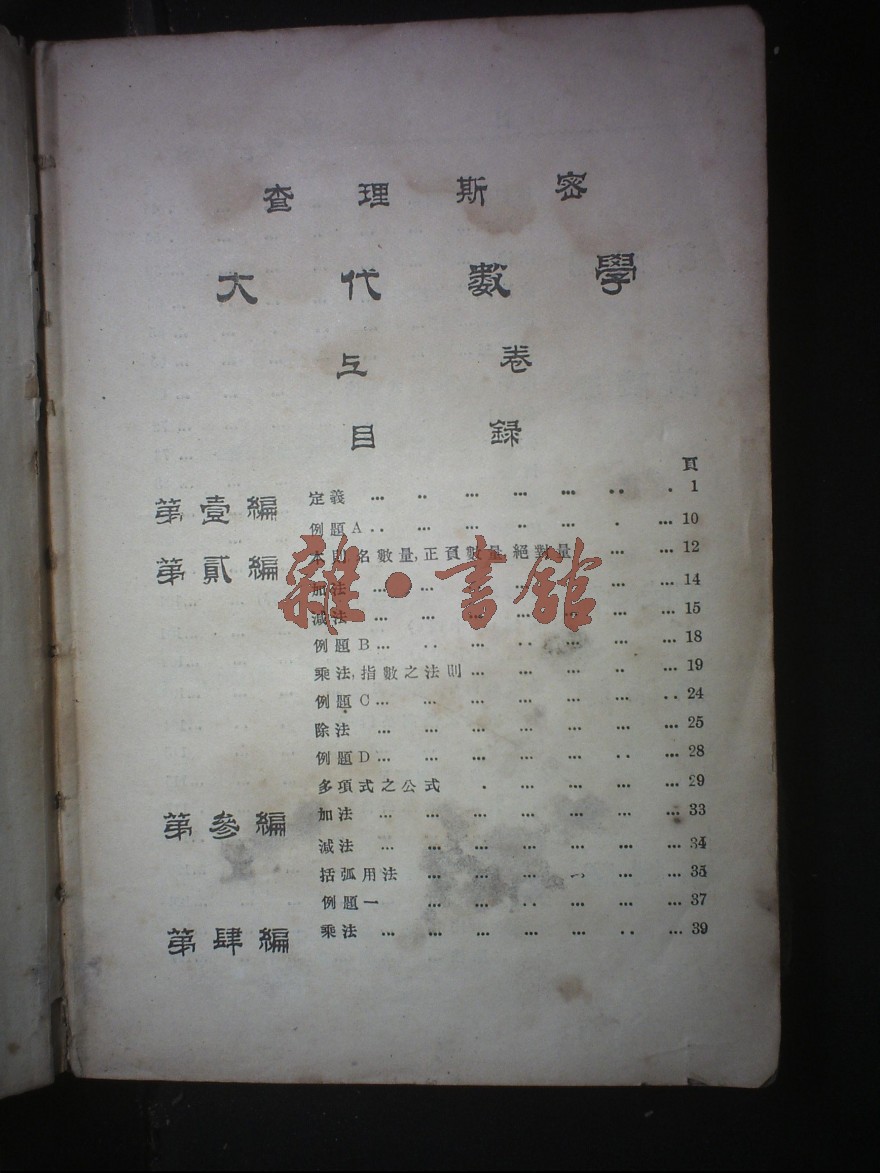 查理斯密
大代數學
上卷
目錄
頁
第壹編 定義 ... .. ... ... ... .. . 1
例題A .. ... ... .. ... . ... 10
第貳編 本則名數量,正負數量,絕對量 ... ... 12
加法 ... ... ... ... ... ... ... 14
減法 ... ... ... ... ... ... ... 15
例題B ... .. ... .. ... ... ... 18
乘法,指數之法則 ... ... ... ... ... 19
例題C ... ... ... ... ... ... .. 24
除法 ... ... ... ... ... ... ... 25
例題D ... ... ... ... ... .. ... 28
多項式之公式 . ... ... ... ... 29
第參編 加法 ... ... ... ... ... ... ... 33
減法 ... ... ... ... ... ... ... 34
括弧用法 ... ... ... ... ... ... 35
例題一 ... ... .. ... ... ... 37
第肆編 乘法 ... ... ... ... ... .. ... 39
雜·書館